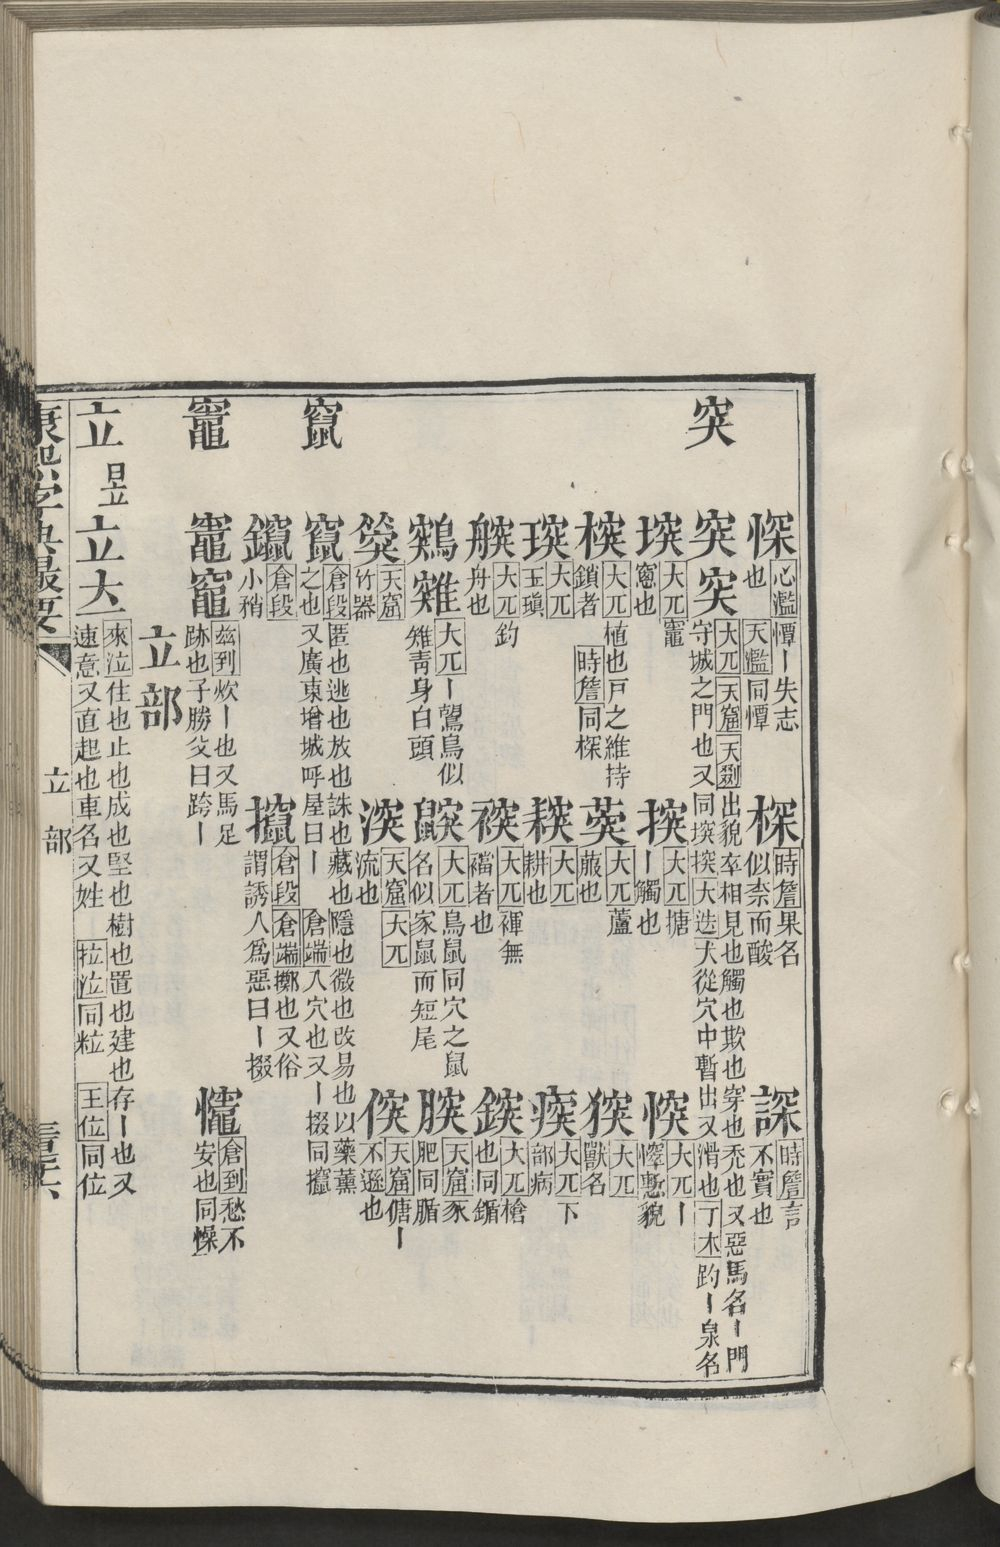 突
㥆 心濫憛丨失志也 天濫同憛
棎 時詹果名似柰而酸
𧨾 時詹言不實也
突 突 大兀 天窟 天劉 出貌卒相見也觸也欺也穿也禿也又惡馬名丨門守城之門也又同堗揬 大迭 犬從穴中暫出又滑也 丁木 趵丨泉名
堗 大兀竈窻也
揬 大兀搪丨觸也
㥔 大兀丨㦜慙貌
㮑 大兀植也戸之維持鎖者 時詹同棎
葖 大兀蘆菔也
㹱 大兀獸名
瑔 大兀玉瑱
大兀耕也
大兀下部病
大兀釣舟也
大兀褌無襠者也
鎫 大兀槍也同鏥
鶟 大兀丨鷔鳥似雉靑身白頭
鼵 大兀鳥鼠同穴之鼠名似家鼠而短尾
腞 天窟豕肥同腯
天窟竹器
湥 天窟 大兀流也
天窟傏丨不遜也
竄
竄 倉段匿也逃也放也誅也藏也隱也微也改易也以藥薰之也又廣東增城呼屋曰丨 倉端入穴也又丨掇同攛
鑹 倉段小矟
攛 倉段 倉端擲也又俗謂誘人爲惡曰丨掇
竈
竈 竃 兹到炊丨也又馬足跡也子勝父曰跨丨
倉到愁不安也同懆
立部
立 昱
立 大 來泣住也止也成也堅也樹也置也建也存丨也又速意又直起也車名又姓 拉泣同粒 王位同位
康熙字典最要
立部